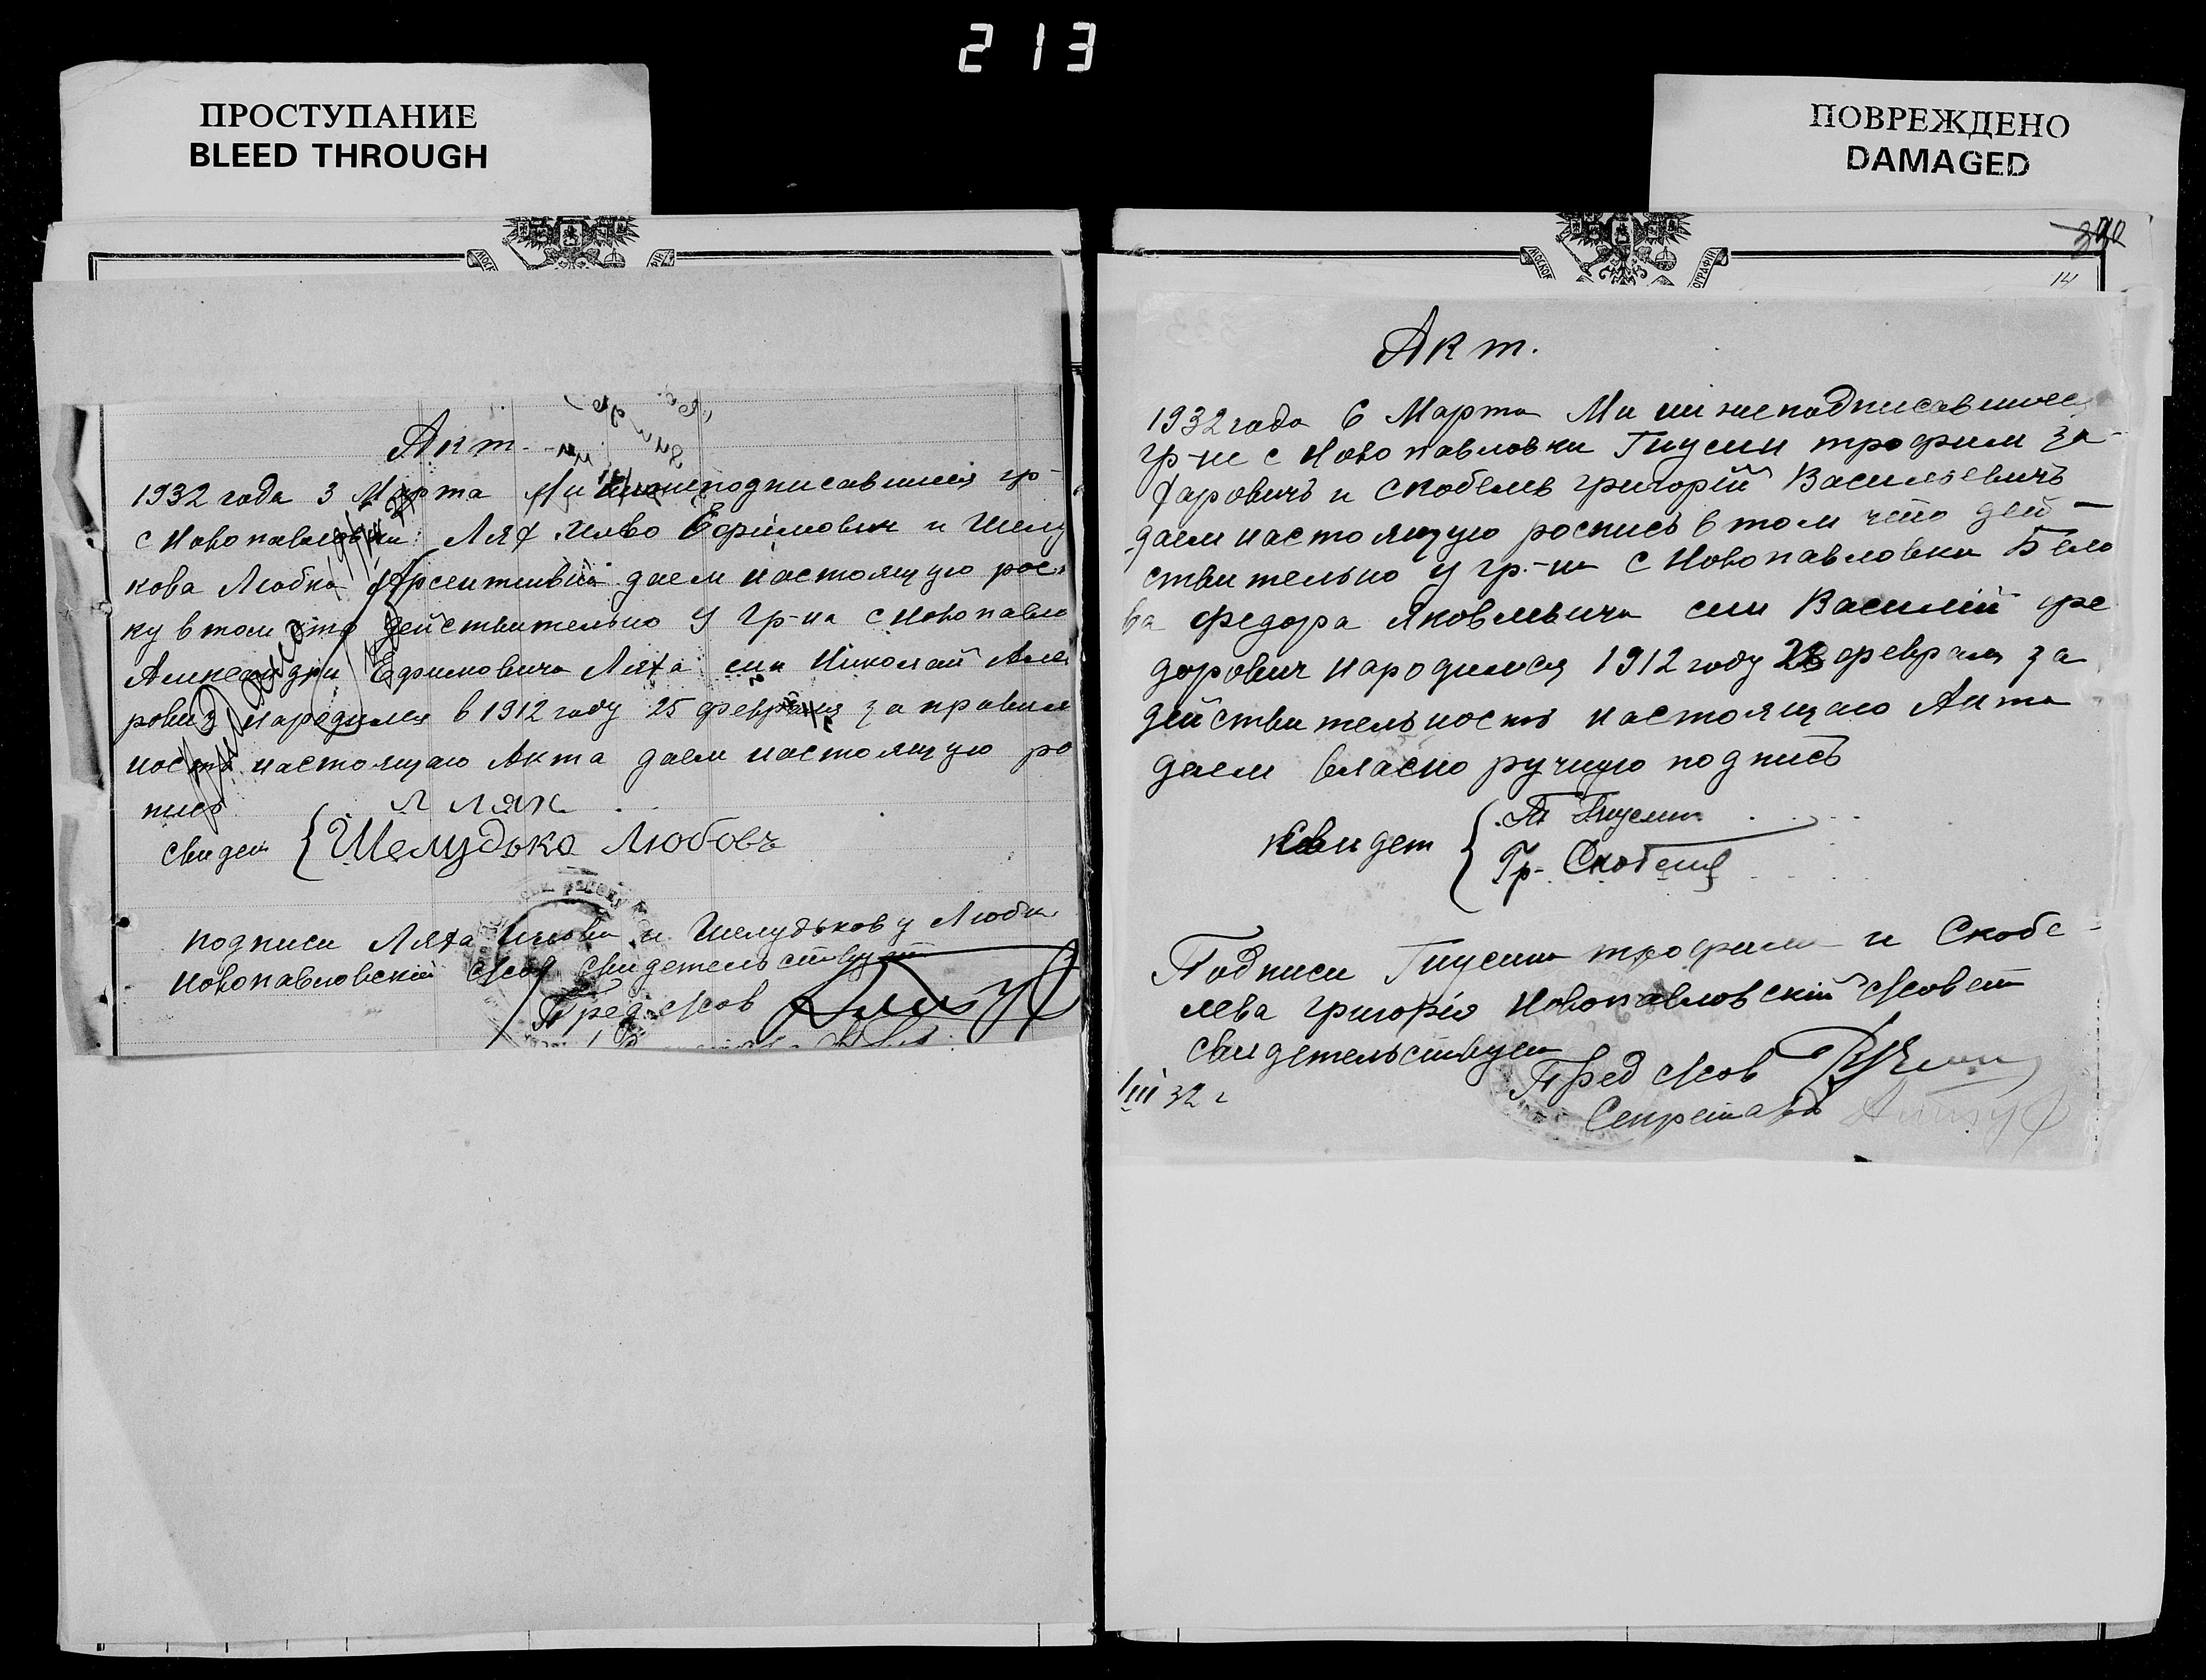 213
ПРОСТУПАНИЕ
BLEED THROUGH
ПОВРЕЖДЕНО
DAMAGED
Акт.
1932 года 3 Марта Ми нижеподписавшиеся гр-
с Новопавловки Лях Илво Ефимович и Шелу
кова Любка Арсентивна даем настоящую рос
ку в том что действительно у гр-на с Новопавло
Александри Ефимовича Ляха син Николай Але
рович народился в 1912 году 25 февраля за правил
ность настоящаго Акта даем настоящую ро
пись
Л Лях
свидет { Шелудько Любовъ
подписи Ляха и Шелудькову Любки
Новопавловский с/сов свидетельствует
Пред с/сов
390
14
Акт.
1932 года 6 Марта Ми нижеподписавшиеся
гр-не с Новопавловки Гнусин трофим За-
харовичъ и Скобелев григорий Васильевичъ
даем настоящую роспись в том что дей-
ствительно у гр-на с Новопавловки Бело
ва федора Яковлевича син Василий фе
дорович народился 1912 году 28 февраля за
действительность настоящаго Акта
даем власно ручную подпись
свидет { Т Гнусин
Гр. Скобелев
Подписи Гнусина трофима и Скобе-
лева григорія Новопавловский с/совет
свидетельствует
Пред с/сов
III 32 г
Секретарь